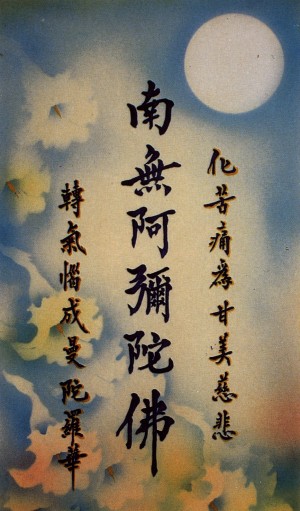 化苦痛為甘美慈悲
南無阿彌陀佛
轉氣惱成曼陀羅華